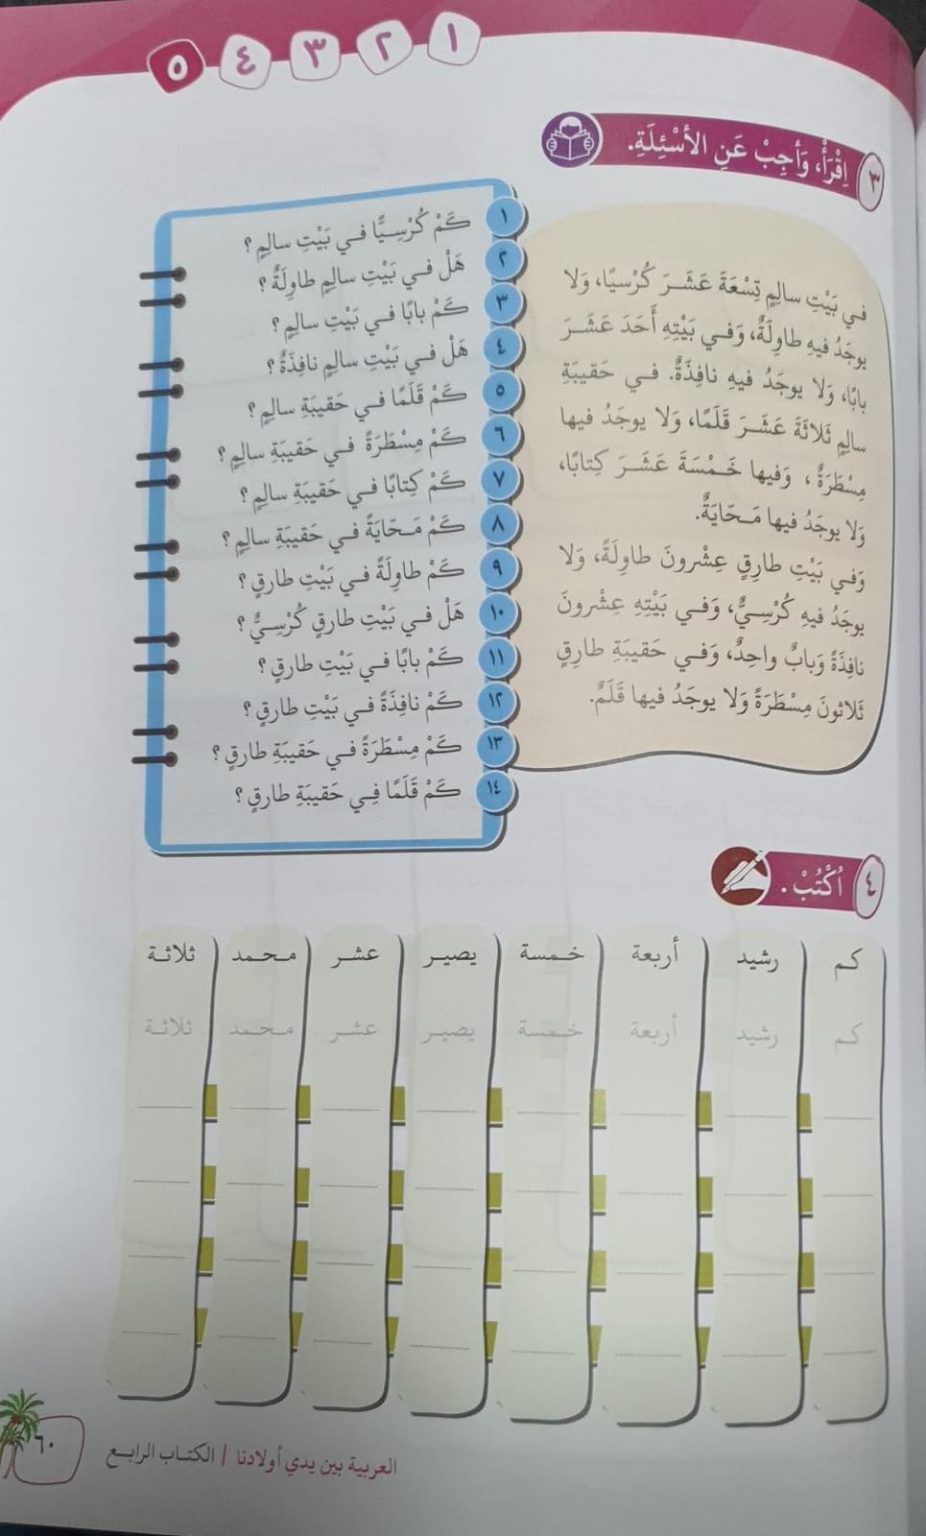 ١ ٢ ٣ ٤ ٥
٣ اِقْرَأْ، وَأَجِبْ عَنِ الأَسْئِلَةِ.
في بَيْتِ سالِمٍ تِسْعَةَ عَشَرَ كُرْسيًا، وَلا
يوجَدُ فيهِ طاوِلَةٌ، وَفي بَيْتِهِ أَحَدَ عَشَرَ
بابًا، وَلا يوجَدُ فيهِ نافِذَةٌ. في حَقيبَةِ
سالِمٍ ثَلاثَةَ عَشَرَ قَلَمًا، وَلا يوجَدُ فيها
مِسْطَرَةٌ، وَفيها خَمْسَةَ عَشَرَ كِتابًا،
وَلا يوجَدُ فيها مَحّايَةٌ.
وَفي بَيْتِ طارِقٍ عِشْرونَ طاوِلَةً، وَلا
يوجَدُ فيهِ كُرْسِيٌّ، وَفي بَيْتِهِ عِشْرونَ
نافِذَةً وَبابٌ واحِدٌ، وَفي حَقيبَةِ طارِقٍ
ثَلاثونَ مِسْطَرَةً وَلا يوجَدُ فيها قَلَمٌ.
١ كَمْ كُرْسِيًّا في بَيْتِ سالِمٍ؟
٢ هَلْ في بَيْتِ سالِمٍ طاوِلَةٌ؟
٣ كَمْ بابًا في بَيْتِ سالِمٍ؟
٤ هَلْ في بَيْتِ سالِمٍ نافِذَةٌ؟
٥ كَمْ قَلَمًا في حَقيبَةِ سالِمٍ؟
٦ كَمْ مِسْطَرَةً في حَقيبَةِ سالِمٍ؟
٧ كَمْ كِتابًا في حَقيبَةِ سالِمٍ؟
٨ كَمْ مَحّايَةً في حَقيبَةِ سالِمٍ؟
٩ كَمْ طاوِلَةً في بَيْتِ طارِقٍ؟
١٠ هَلْ في بَيْتِ طارِقٍ كُرْسِيٌّ؟
١١ كَمْ بابًا في بَيْتِ طارِقٍ؟
١٢ كَمْ نافِذَةً في بَيْتِ طارِقٍ؟
١٣ كَمْ مِسْطَرَةً في حَقيبَةِ طارِقٍ؟
١٤ كَمْ قَلَمًا فِي حَقيبَةِ طارِقٍ؟
٤ اُكْتُبْ.
كم رشيد أربعة خمسة يصير عشر محمد ثلاثة
كم رشيد أربعة خمسة يصير عشر محمد ثلاثة
العربية بين يدي أولادنا / الكتاب الرابع
٦٠